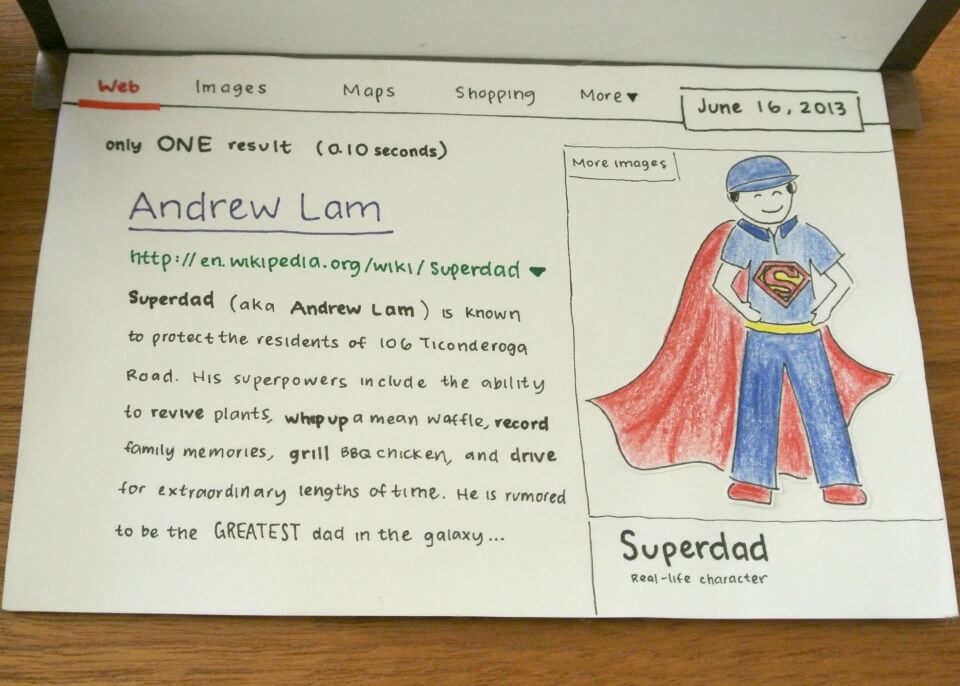 Web Images Maps Shopping More▼
June 16, 2013
only ONE result (0.10 seconds)
Andrew Lam
http://en.wikipedia.org/wiki/Superdad
Superdad (aka Andrew Lam) is known
to protect the residents of 106 Ticonderoga
Road. His superpowers include the ability
to revive plants, whip up a mean waffle, record
family memories, grill BBQ chicken, and drive
for extraordinary lengths of time. He is rumored
to be the GREATEST dad in the galaxy...
More images
S
Superdad
Real-life character